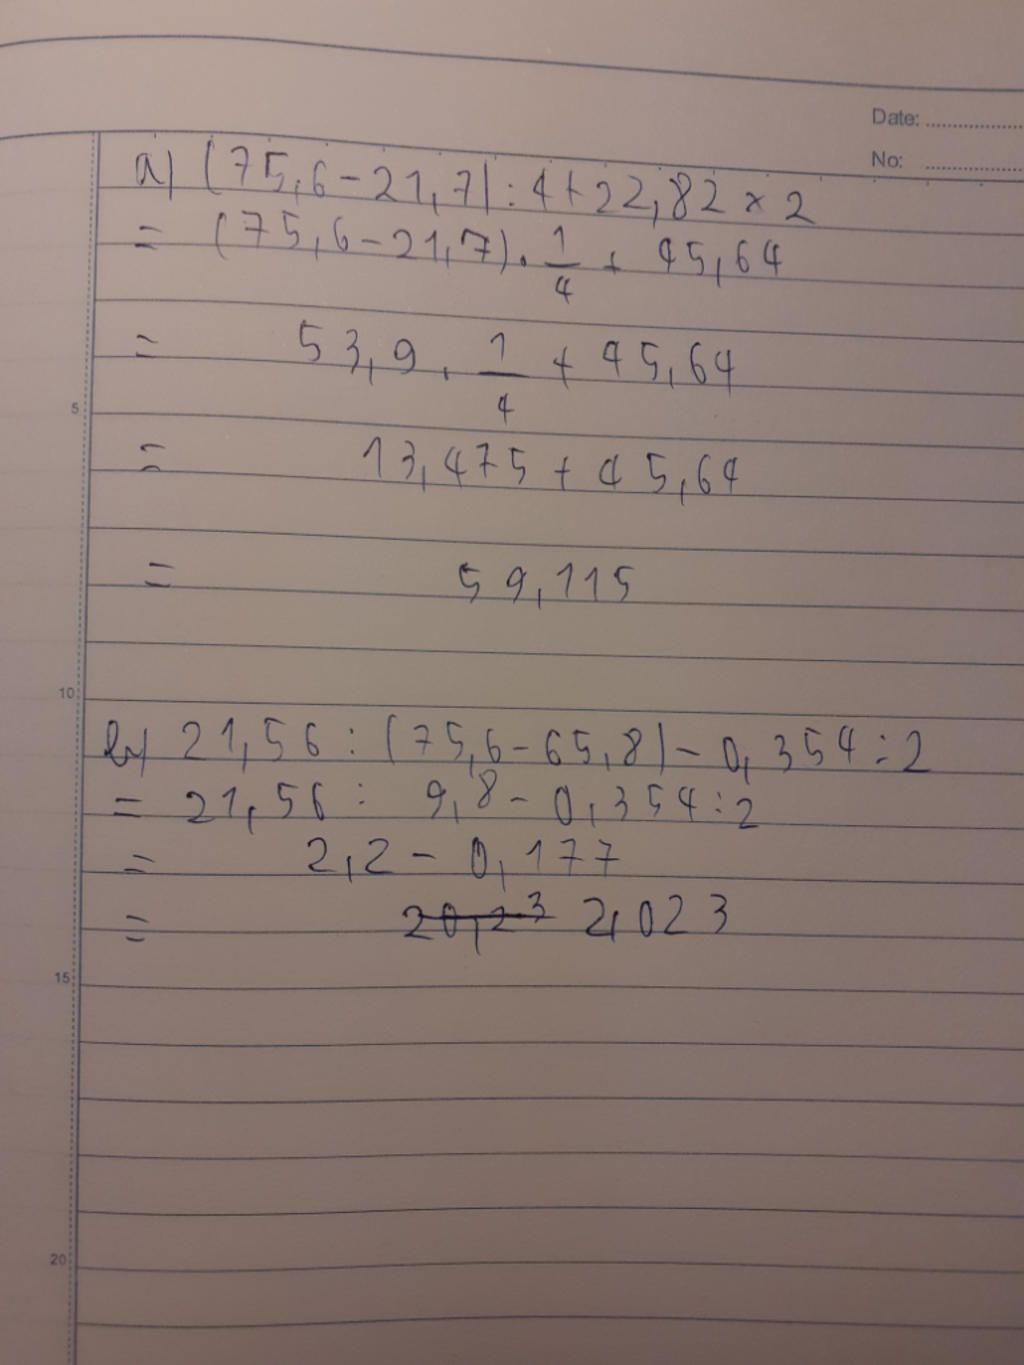 Date:
No:
a) (75,6-21,7):4+22,82 x 2
= (75,6-21,7).1/4 + 45,64
= 53,9.1/4 + 45,64
5
= 13,475 + 45,64
= 59,115
10
b) 21,56 : (75,6-65,8) - 0,354:2
= 21,56 : 9,8 - 0,354:2
= 2,2 - 0,177
= 20,23 2,023
15
20